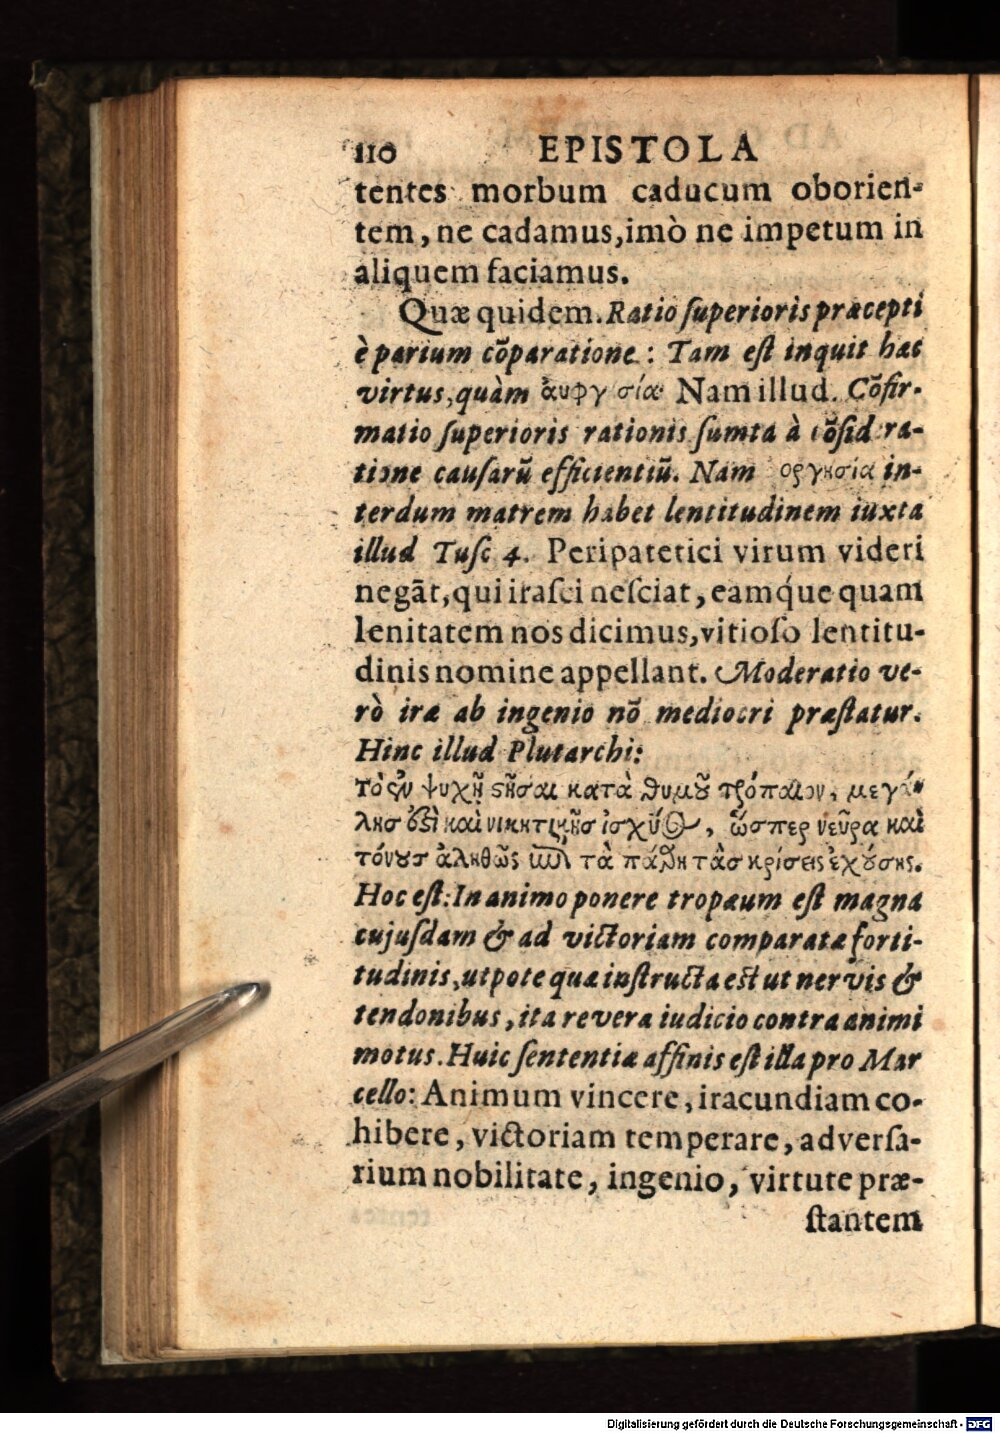 110 EPISTOLA
tentes morbum caducum oborien-
tem, ne cadamus, imò ne impetum in
aliquem faciamus.
Quæ quidem. Ratio ſuperioris præcepti
è parium cōparatione: Tam eſt inquit hæc
virtus, quàm Nam illud. Cōfir-
matio ſuperioris rationis ſumta à cōſidera-
tione cauſarū efficientiū. Nam οργησία in-
terdum matrem habet lentitudinem iuxta
illud Tuſc 4. Peripatetici virum videri
negāt, qui iraſci neſciat, eamq́ue quam
lenitatem nos dicimus, vitioſo lentitu-
dinis nomine appellant. Moderatio ve-
rò iræ ab ingenio nō mediocri præſtatur.
Hinc illud Plutarchi:
ψυχῇ ςῆσαι κατὰ θυμοῦ τρόπαιον, μεγά-
λησ καὶ νικητικῆσ ἰσχύος, ὥσπερ νεῦρα καὶ
τόνουσ ἀληθῶς τὰ πάθη τὰσ κρίσεις ἐχούσης.
Hoc eſt: In animo ponere tropæum eſt magnæ
cujuſdam & ad victoriam comparatæ forti-
tudinis, utpote quæ inſtructa est ut nervis &
tendonibus, ita revera iudicio contra animi
motus. Huic ſententiæ affinis eſt illa pro Mar
cello: Animum vincere, iracundiam co-
hibere, victoriam temperare, adverſa-
rium nobilitate, ingenio, virtute præ-
ſtantem
Digitalisierung gefördert durch die Deutsche Forschungsgemeinschaft - DFG